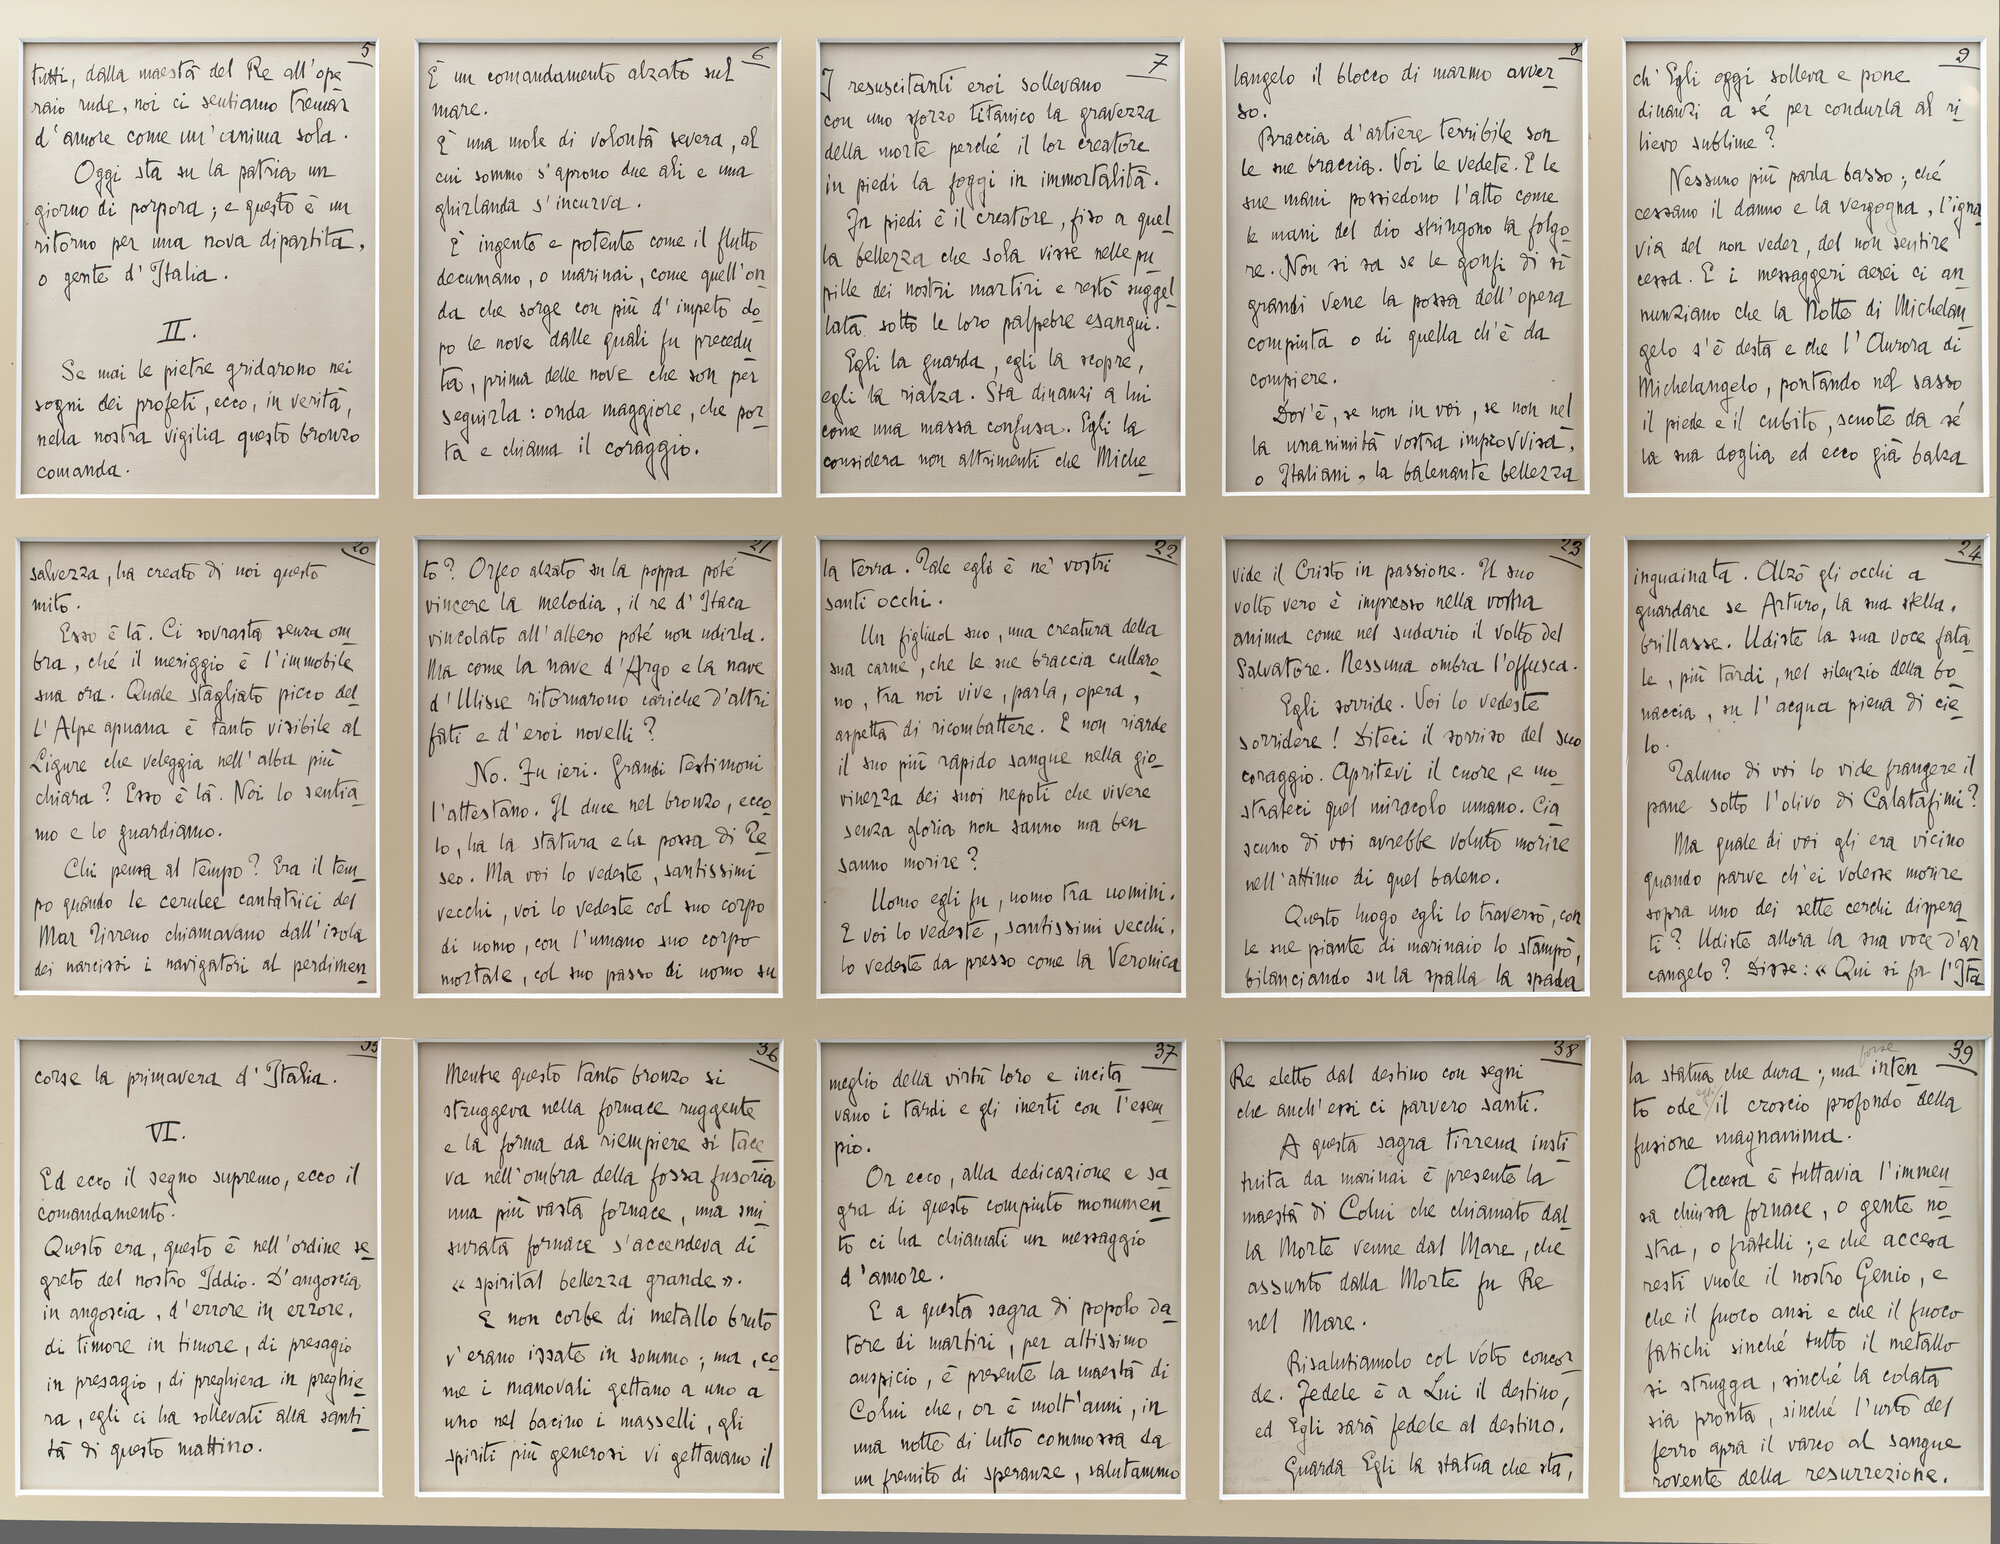 5
tutti, dalla maestà del Re all'ope
raio rude, noi ci sentiamo tremar
d'amore come un'anima sola.
Oggi sta su la patria un
giorno di porpora; e questo è un
ritorno per una nova dipartita,
o gente d'Italia.
II.
Se mai le pietre gridarono nei
sogni dei profeti, ecco, in verità,
nella nostra vigilia questo bronzo
comanda.
6
È un comandamento alzato sul
mare.
È una mole di volontà severa, al
cui sommo s'aprono due ali e una
ghirlanda s'incurva.
È ingente e potente come il flutto
decumano, o marinai, come quell'on
da che sorge con più d'impeto do
po le nove dalle quali fu precedu
ta, prima delle nove che son per
seguirla: onda maggiore, che por
ta e chiama il coraggio.
7
I resuscitanti eroi sollevano
con uno sforzo titanico la gravezza
della morte perché il lor creatore
in piedi la foggi in immortalità.
In piedi è il creatore, fiso a quel
la bellezza che sola visse nelle pu
pille dei nostri martiri e restò suggel
lata sotto le loro palpebre esangui.
Egli la guarda, egli la scopre,
egli la rialza. Sta dinanzi a lui
come una massa confusa. Egli la
considera non altrimenti che Miche
8
langelo il blocco di marmo avver
so.
Braccia d'artiere terribile son
le sue braccia. Voi le vedete. E le
sue mani possiedono l'atto come
le mani del dio stringono la folgo
re. Non si sa se le gonfi di sì
grandi vene la possa dell'opera
compiuta o di quella ch'è da
compiere.
Dov'è, se non in voi, se non nel
la unanimità vostra improvvisa,
o Italiani, la balenante bellezza
9
ch'Egli oggi solleva e pone
dinanzi a sé per condurla al ri
lievo sublime?
Nessuno più parla basso; ché
cessano il danno e la vergogna, l'igna
via del non veder, del non sentire
cessa. E i messaggeri aerei ci an
nunziano che la Notte di Michelan
gelo s'è desta e che l'Aurora di
Michelangelo, pontando nel sasso
il piede e il cubito, scuote da sé
la sua doglia ed ecco già balza
20
salvezza, ha creato di noi questo
mito.
Esso è là. Ci sovrasta senza om
bra, ché il meriggio è l'immobile
sua ora. Quale stagliato picco del
l'Alpe apuana è tanto visibile al
Ligure che veleggia nell'alba più
chiara? Esso è là. Noi lo sentia
mo e lo guardiamo.
Chi pensa al tempo? Era il tem
po quando le cerulee cantatrici del
Mar Tirreno chiamavano dall'isola
dei narcissi i navigatori al perdimen
21
to? Orfeo alzato su la poppa poté
vincere la melodia, il re d'Itaca
vincolato all'albero poté non udirla.
Ma come la nave d'Argo e la nave
d'Ulisse ritornarono cariche d'altri
fati e d'eroi novelli?
No. Fu ieri. Grandi testimoni
l'attestano. Il duce nel bronzo, ecco
lo, ha la statura e la possa di Te
seo. Ma voi lo vedeste, santissimi
vecchi, voi lo vedeste col suo corpo
di uomo, con l'umano suo corpo
mortale, col suo passo di uomo su
22
la terra. Tale egli è ne' vostri
santi occhi.
Un figliuol suo, una creatura della
sua carne, che le sue braccia cullaro
no, tra noi vive, parla, opera,
aspetta di ricombattere. E non riarde
il suo più rapido sangue nella gio
vinezza dei suoi nepoti che vivere
senza gloria non sanno ma ben
sanno morire?
Uomo egli fu, uomo tra uomini.
E voi lo vedeste, santissimi vecchi,
lo vedeste da presso come la Veronica
23
vide il Cristo in passione. Il suo
volto vero è impresso nella vostra
anima come nel sudario il volto del
Salvatore. Nessuna ombra l'offusca.
Egli sorride. Voi lo vedeste
sorridere! Diteci il sorriso del suo
coraggio. Apritevi il cuore, e mo
strateci quel miracolo umano. Cia
scuno di voi avrebbe voluto morire
nell'attimo di quel baleno.
Questo luogo egli lo traversò, con
le sue piante di marinaio lo stampò,
bilanciando su la spalla la spada
24
inguainata. Alzò gli occhi a
guardare se Arturo, la sua stella,
brillasse. Udiste la sua voce fata
le, più tardi, nel silenzio della bo
naccia, su l'acqua piena di cie
lo.
Taluno di voi lo vide frangere il
pane sotto l'olivo di Calatafimi?
Ma quale di voi gli era vicino
quando parve ch'ei volesse morire
sopra uno dei sette cerchi dispera
ti? Udiste allora la sua voce d'ar
cangelo? Disse: «Qui si fa l'Ita
35
corse la primavera d'Italia.
VI.
Ed ecco il segno supremo, ecco il
comandamento.
Questo era, questo è nell'ordine se
greto del nostro Iddio. D'angoscia
in angoscia, d'errore in errore,
di timore in timore, di presagio
in presagio, di preghiera in preghie
ra, egli ci ha sollevati alla santi
tà di questo mattino.
36
Mentre questo tanto bronzo si
struggeva nella fornace ruggente
e la forma da riempiere si tace
va nell'ombra della fossa fusoria
una più vasta fornace, una smi
surata fornace s'accendeva di
«spirital bellezza grande».
E non corbe di metallo bruto
v'erano issate in sommo; ma, co
me i manovali gettano a uno a
uno nel bacino i masselli, gli
spiriti più generosi vi gettavano il
37
meglio della virtù loro e incita
vano i tardi e gli inerti con l'esem
pio.
Or ecco, alla dedicazione e sa
gra di questo compiuto monumen
to ci ha chiamati un messaggio
d'amore.
E a questa sagra di popolo da
tore di martiri, per altissimo
auspicio, è presente la maestà di
Colui che, or è molt'anni, in
una notte di lutto commossa da
un fremito di speranze, salutammo
38
Re eletto dal destino con segni
che anch'essi ci parvero santi.
A questa sagra tirrena insti
tuita da marinai è presente la
maestà di Colui che chiamato dal
la Morte venne dal Mare, che
assunto dalla Morte fu Re
nel Mare.
Risalutiamolo col vóto concor
de. Fedele è a Lui il destino,
ed Egli sarà fedele al destino.
Guarda Egli la statua che sta,
39
forse
la statua che dura; ma inten
to ode il croscio profondo della
fusione magnanima.
Accesa è tuttavia l'immen
sa chiusa fornace, o gente no
stra, o fratelli; e che accesa
resti vuole il nostro Genio, e
che il fuoco ansi e che il fuoco
fatichi sinché tutto il metallo
si strugga, sinché la colata
sia pronta, sinché l'urto del
ferro apra il varco al sangue
rovente della resurrezione.